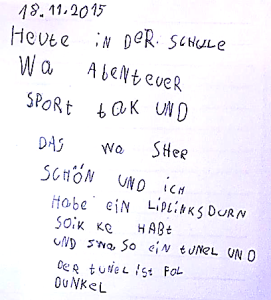 18.11.2015
Heute in der Schule
Wa Abenteuer
Sport tak und
das wa sher
schön und ich
habe ein Liplinksdurn
soik ke habt
und swa so ein tunel und
der tunel ist fol
dunkel